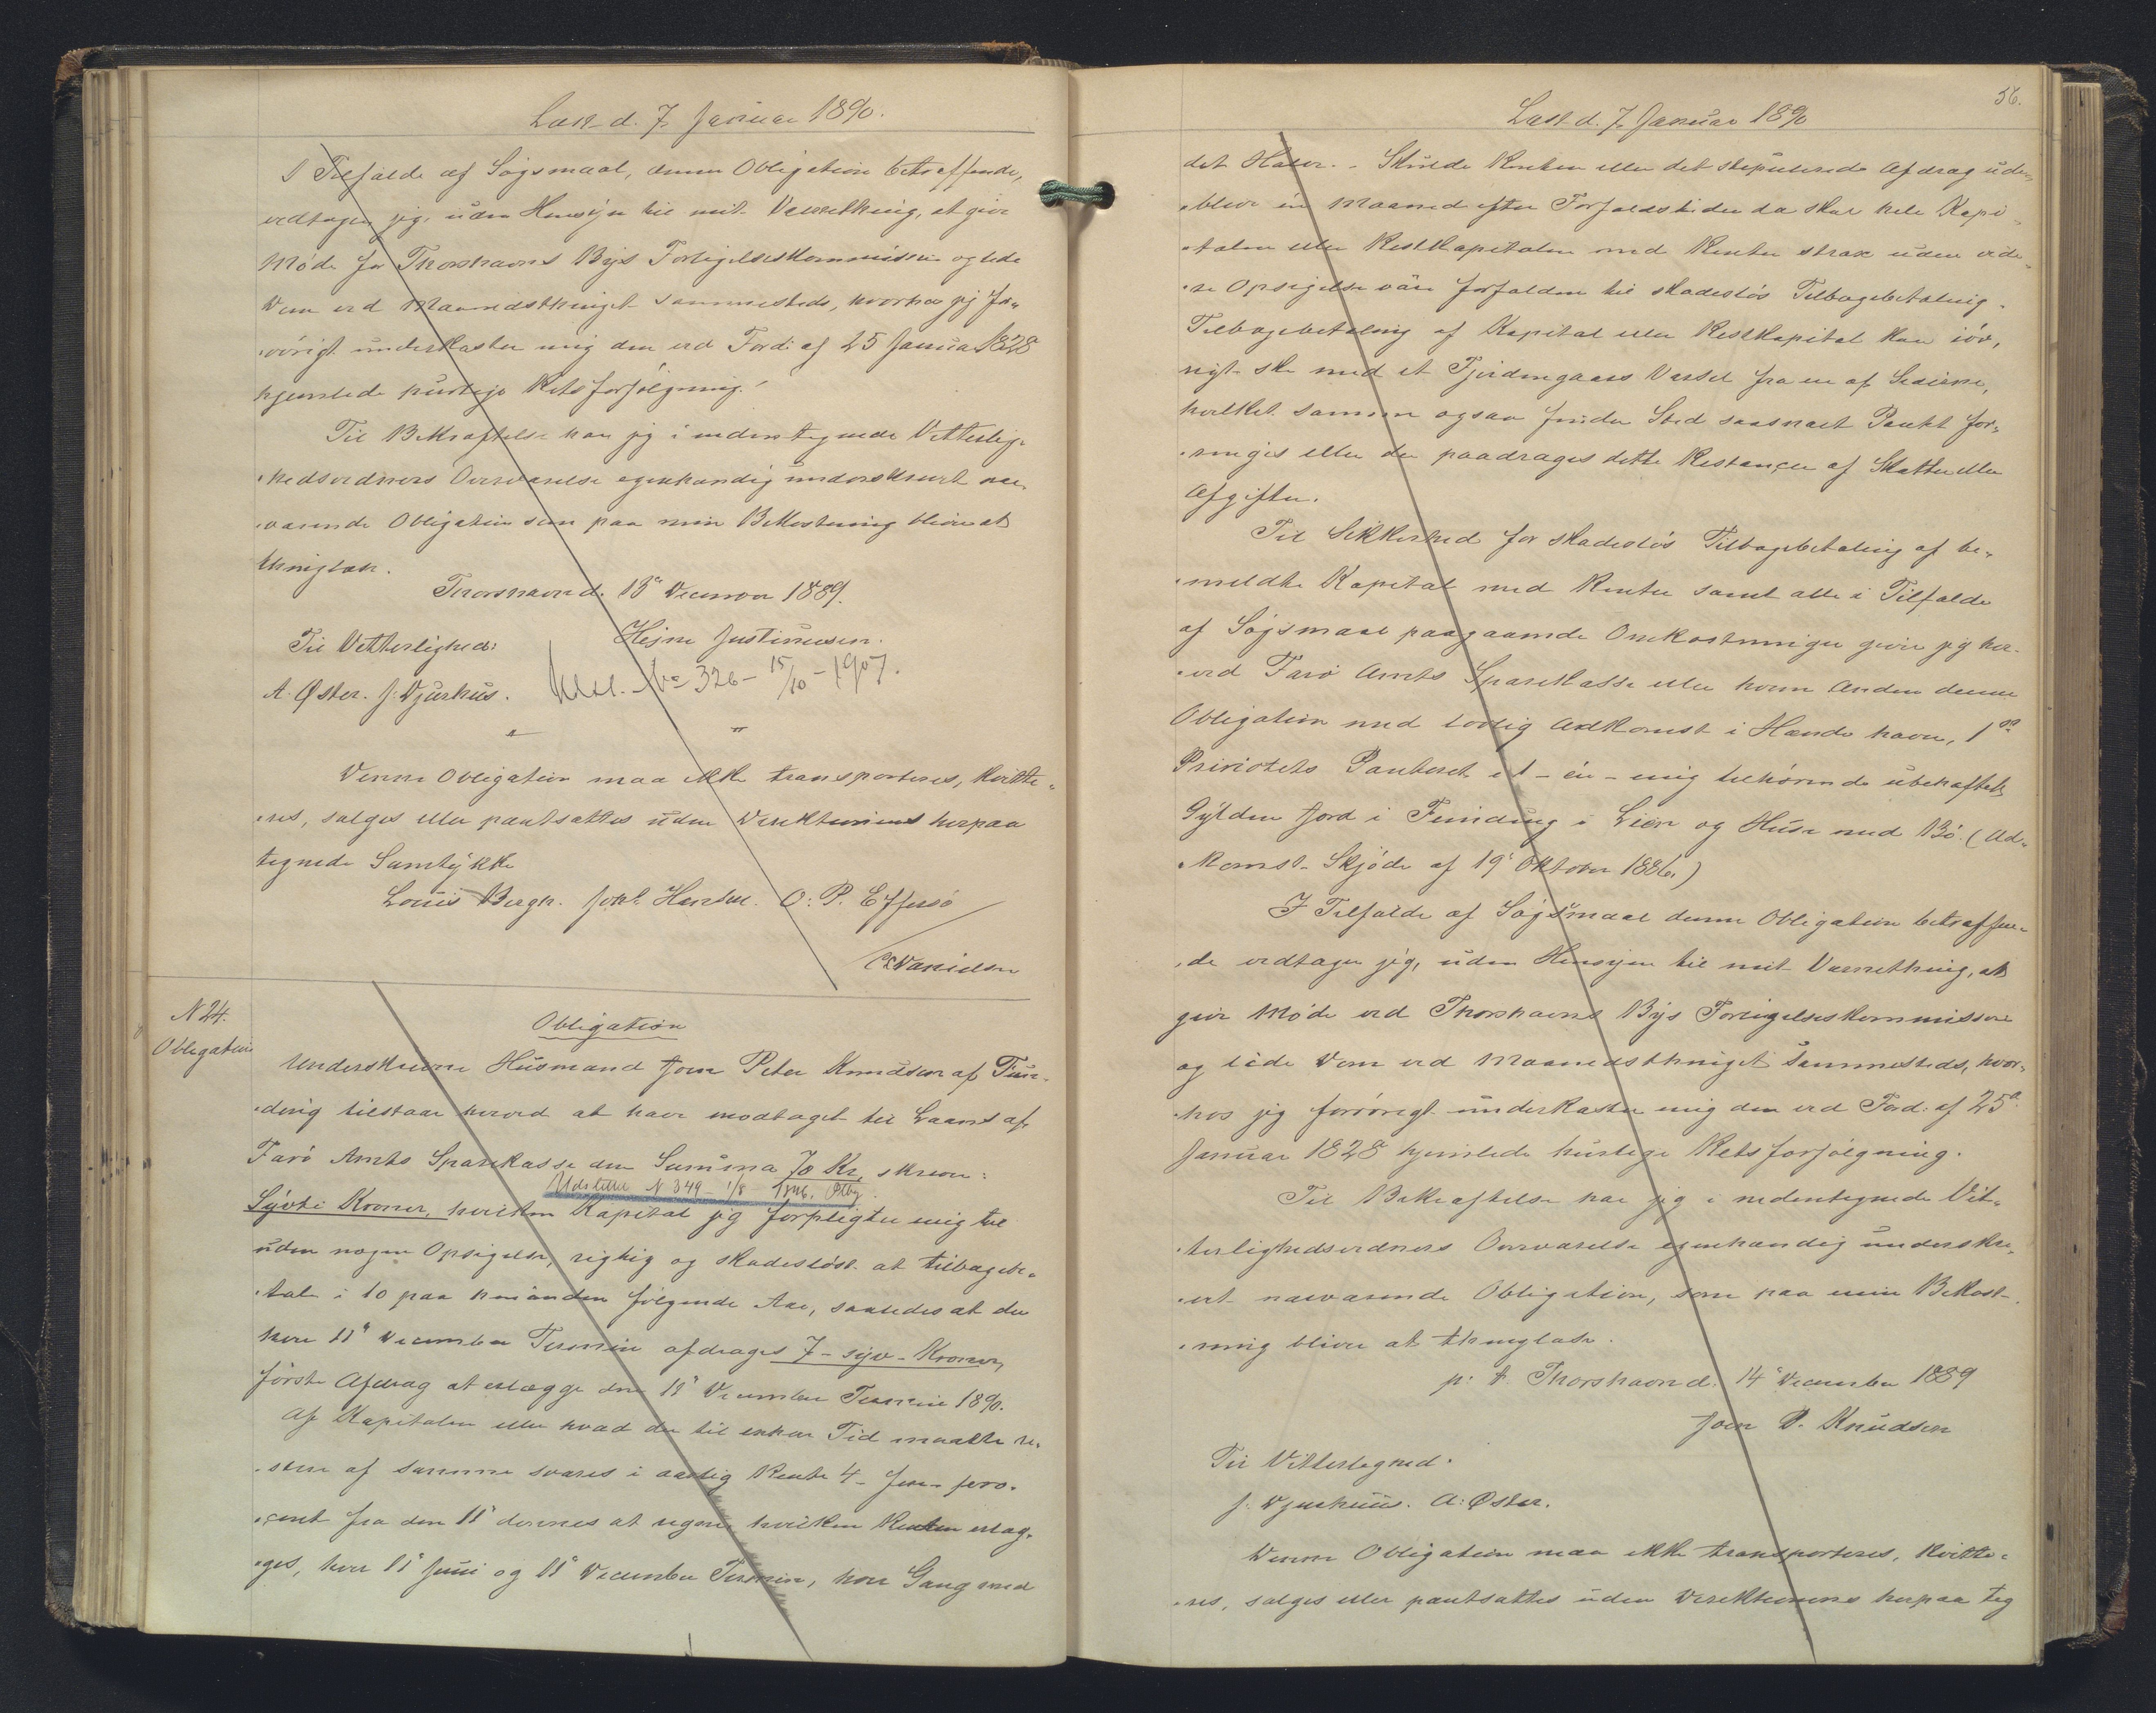 Læst d. 7 Januar 1890.
I Tilfælde af Søgsmaal, denne Obligation betræffende,
vedtager jeg, uden Hensyn til mit Værnething, at give
Møde for Thorshavns Byes Forligelseskommission og lide
Dom ved Maanedsthinget sammesteds, hvorhos jeg for-
øvrigt underkaster mig den ved Frd: af 25 Januar 1828
hjemlede hurtige Retsforfølgning.
Til Bekræftelse har jeg i undertegnede Vitterlig-
hedsvidners Overværelse egenhændig underskrevet nær-
værende Obligation som paa min Bekostning bliver at
thinglæse.
Thorshavn d. 13de December 1889.
Hejne Justinussen.
Til Vitterlighed:
A. Øster. J. Djurhus.
No 326 - 15/10 - 1907.
Denne Obligation maa ikke transporteres, kvitte-
res, sælges eller pantsættes uden Direktionens herpaa
tegnede Samtykke
Louis Bergh. O. P. Effersø
/ Danielsen
N 24.
Obligation
Obligation
Underskrevne Husmand Joen Peter Knudsen af Fun-
ding tilstaar herved at have modtaget til Laans af
Farø Amts Sparekasse den Summa 70 Kr, skriver:
Udslettet N 349 - 1/8
Syvti Kroner, hvilken Kapital jeg forpligter mig til
uden nogen Opsigelse, rigtig og skadesløst at tilbagebe-
tale i 10 paa hinanden følgende Aar, saaledes at der
hver 11te December Termin afdrages 7 - syv - Kroner,
første Afdrag at erlægge den 11te December Termin 1890.
Af Kapitalen eller hvad der til enhver Tid maatte re-
stere af samme svares i aarlig Rente 4 - fire - pro-
cent fra den 11te dennes at regne, hvilken Renten erlæg-
ges, hver 11te Juni og 11te December Termin, hver Gang med
56.
Læst d. 7 Januar 1890
det Halve. - Skulde Renten eller det stipulerede Afdrag ude-
blive én Maaned efter Forfaldstiden da skal hele Kapi-
talen eller Restkapitalen med Renter strax uden vide-
re Opsigelse være forfalden til skadesløs Tilbagebetaling.
Tilbagebetaling af Kapital eller Restkapital kan iøv-
rigt ske med et Fjerdingaars Varsel fra en af Siderne,
hvilket samme ogsaa finder Sted saasnart Pantet for-
ringes eller der paadrages dette Restancer af Skatter eller
Afgifter.
Til Sikkerhed for skadesløs Tilbagebetaling af be-
meldte Kapital med Renter samt alle i Tilfælde
af Søgsmaal paagaaende Omkostninger giver jeg her-
ved Farø Amts Sparekasse eller hvem Anden denne
Obligation med lovlig Adkomst i Hænde haver, 1ste
Prioritets Panteret i 1 - én - mig tilhørende ubehæftet
Gylden Jord i Funding i Lien og Huse med Bø. (Ad-
komst - Skjøde af 19de Oktober 1886)
I Tilfælde af Søgsmaal denne Obligation betræffen-
de vedtager jeg, uden Hensyn til mit Værnething, at
give Møde ved Thorshavns Byes Forligelseskommission
og lide Dom ved Maanedsthinget sammesteds, hvor-
hos jeg forøvrigt underkaster mig den ved Frd: af 25de
Januar 1828 hjemlede hurtige Retsforfølgning.
Til Bekræftelse har jeg i nedentegnede Vit-
terlighedsvidners Overværelse egenhændig underskre-
vet nærværende Obligation, som paa min Bekost-
ning bliver at thinglæse.
p. t. Thorshavn d. 14de December 1889
Joen P. Knudsen
Til Vitterlighed:
J. Djurhuus. A. Øster.
Denne Obligation maa ikke transporteres, kvitte-
res, sælges eller pantsættes uden Direktionens herpaa teg